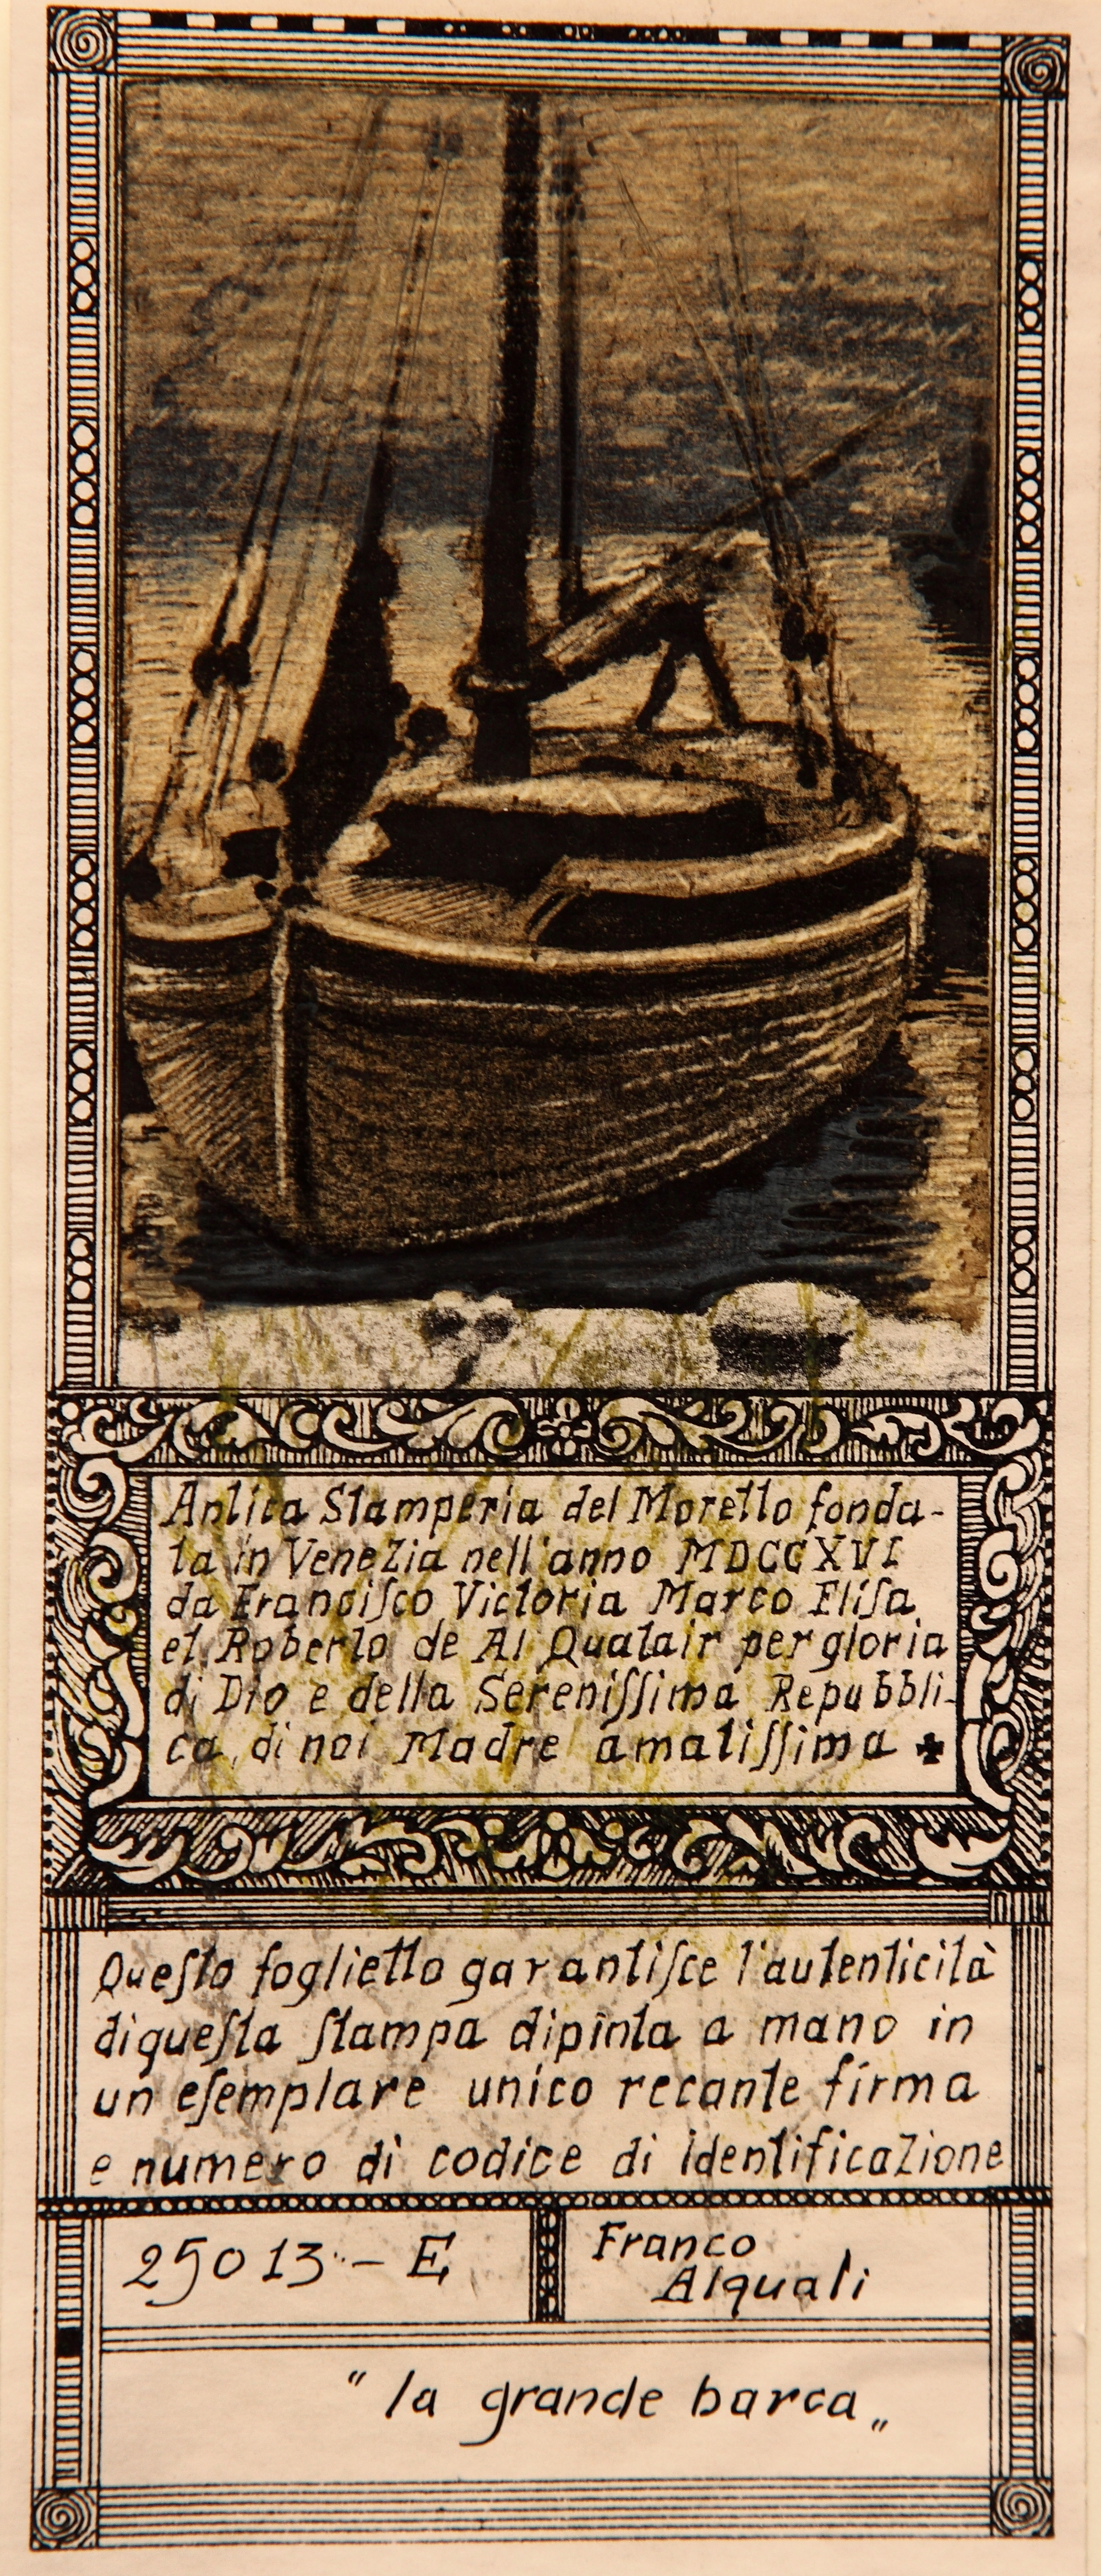 Antica Stamperia del Moretto fonda-
ta in Venezia nell'anno MDCCXVI
da Franciſco Victoria Marco Eliſa
et Roberto de Al Qualair per gloria
di Dio e della Sereniſſima Repubbli-
ca, di noi Madre amatiſſima ✠
Queſto foglietto garantiſce l'autenticità
di queſta ſtampa dipinta a mano in
un eſemplare unico recante firma
e numero di codice di identificazione
25013 - E
Franco
Alquati
"la grande barca„